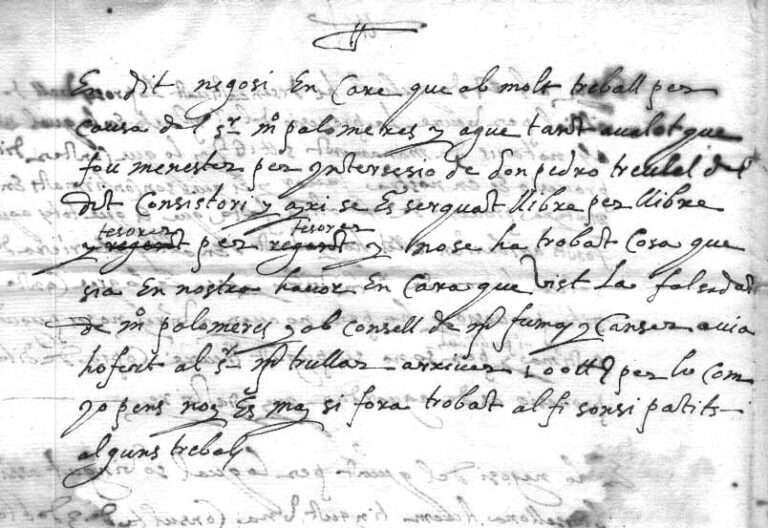 En dit negosi En Care que ab molt treball per
causa del sr mo palomeres y ague tant aualot que
fou menester per yntersesio de don pedro treulel del
dit Consistori y axi se Es serquat llibre per llibre
tesorer tesorer
y regent per regent y no se ha trobat Cosa que
sia En nostra hauor En Cara que vist La falsedat
de mo palomeres y ab consell de mo fumas y Canser auia
hofert al sr mo trullar arriuar 100 per lo com
yo pens noy Es may si fora trobat al fi sonsi patits
alguns trebals